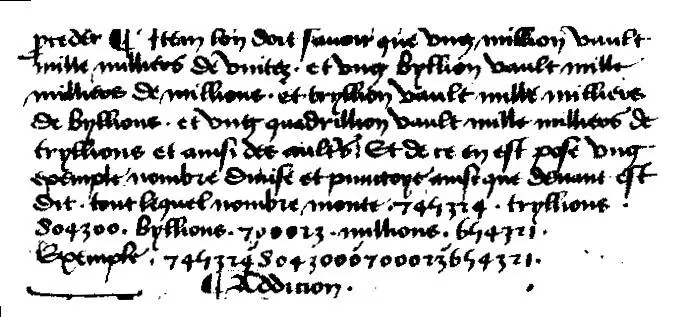 proceder ¶ Item lon doit sauoir que vng million vault
mille milliers de vnitez · et vng byllion vault mille
milliers de millions · et tryllion vault mille milliers
de byllions · et vng quadrillion vault mille milliers de
tryllions et ainsi des aultres Et de ce en est pose vng
exemple nombre diuise et punctoye ainsi que deuant est
dit · tout lequel nombre monte · 745324 · tryllions ·
804300 · byllions · 700023 · millions · 654321 ·
Exemple · 7453248043000700023654321 ·
¶ Addicion ·